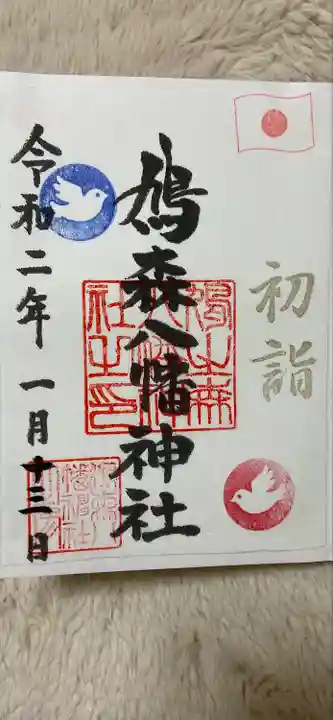 初詣
鳩森八幡神社
令和二年 一月十三日